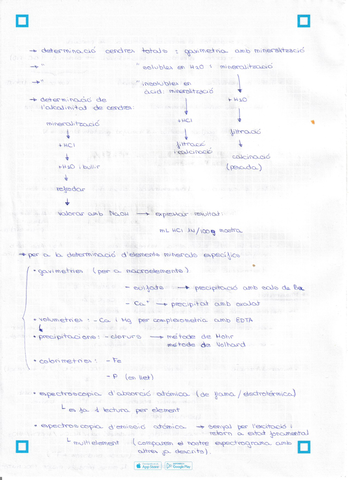 → determinació cendres totals : gravimetria amb mineralització
→ " " solubles en H2O i mineralització
→ " " insolubles en àcid. mineralització
→ determinació de l'alcalinitat de cendres:
mineralització
↓
+HCl
↓
+H2O i bullir
↓
refredar
↓
valorar amb NaOH → expressar resultat:
mL HCl 1N/100g mostra
+HCl
↓
filtració
calcinació
+ H2O
↓
filtració
↓
calcinació
(pesada)
→ per a la determinació d'elements minerals específics
• gravimetries (per a macroelements)
- sulfats → precipitació amb sals de Ba
- Ca²⁺ → precipitat amb oxalat
• volumetries : - Ca i Mg per complexometria amb EDTA
• precipitacions : - clorurs → mètode de Mohr
mètode de Volhard
• colorimetries : - Fe
- P
• espectroscopia d'absorció atòmica (de flama / electrotèrmica)
↳ es fa 1 lectura per element
• espectroscopia d'emissió atòmica → senyal per l'excitació i retorn a estat fonamental
↳ multielement (comparem el nostre espectrograma amb altres ja descrits).
App Store
Google Play